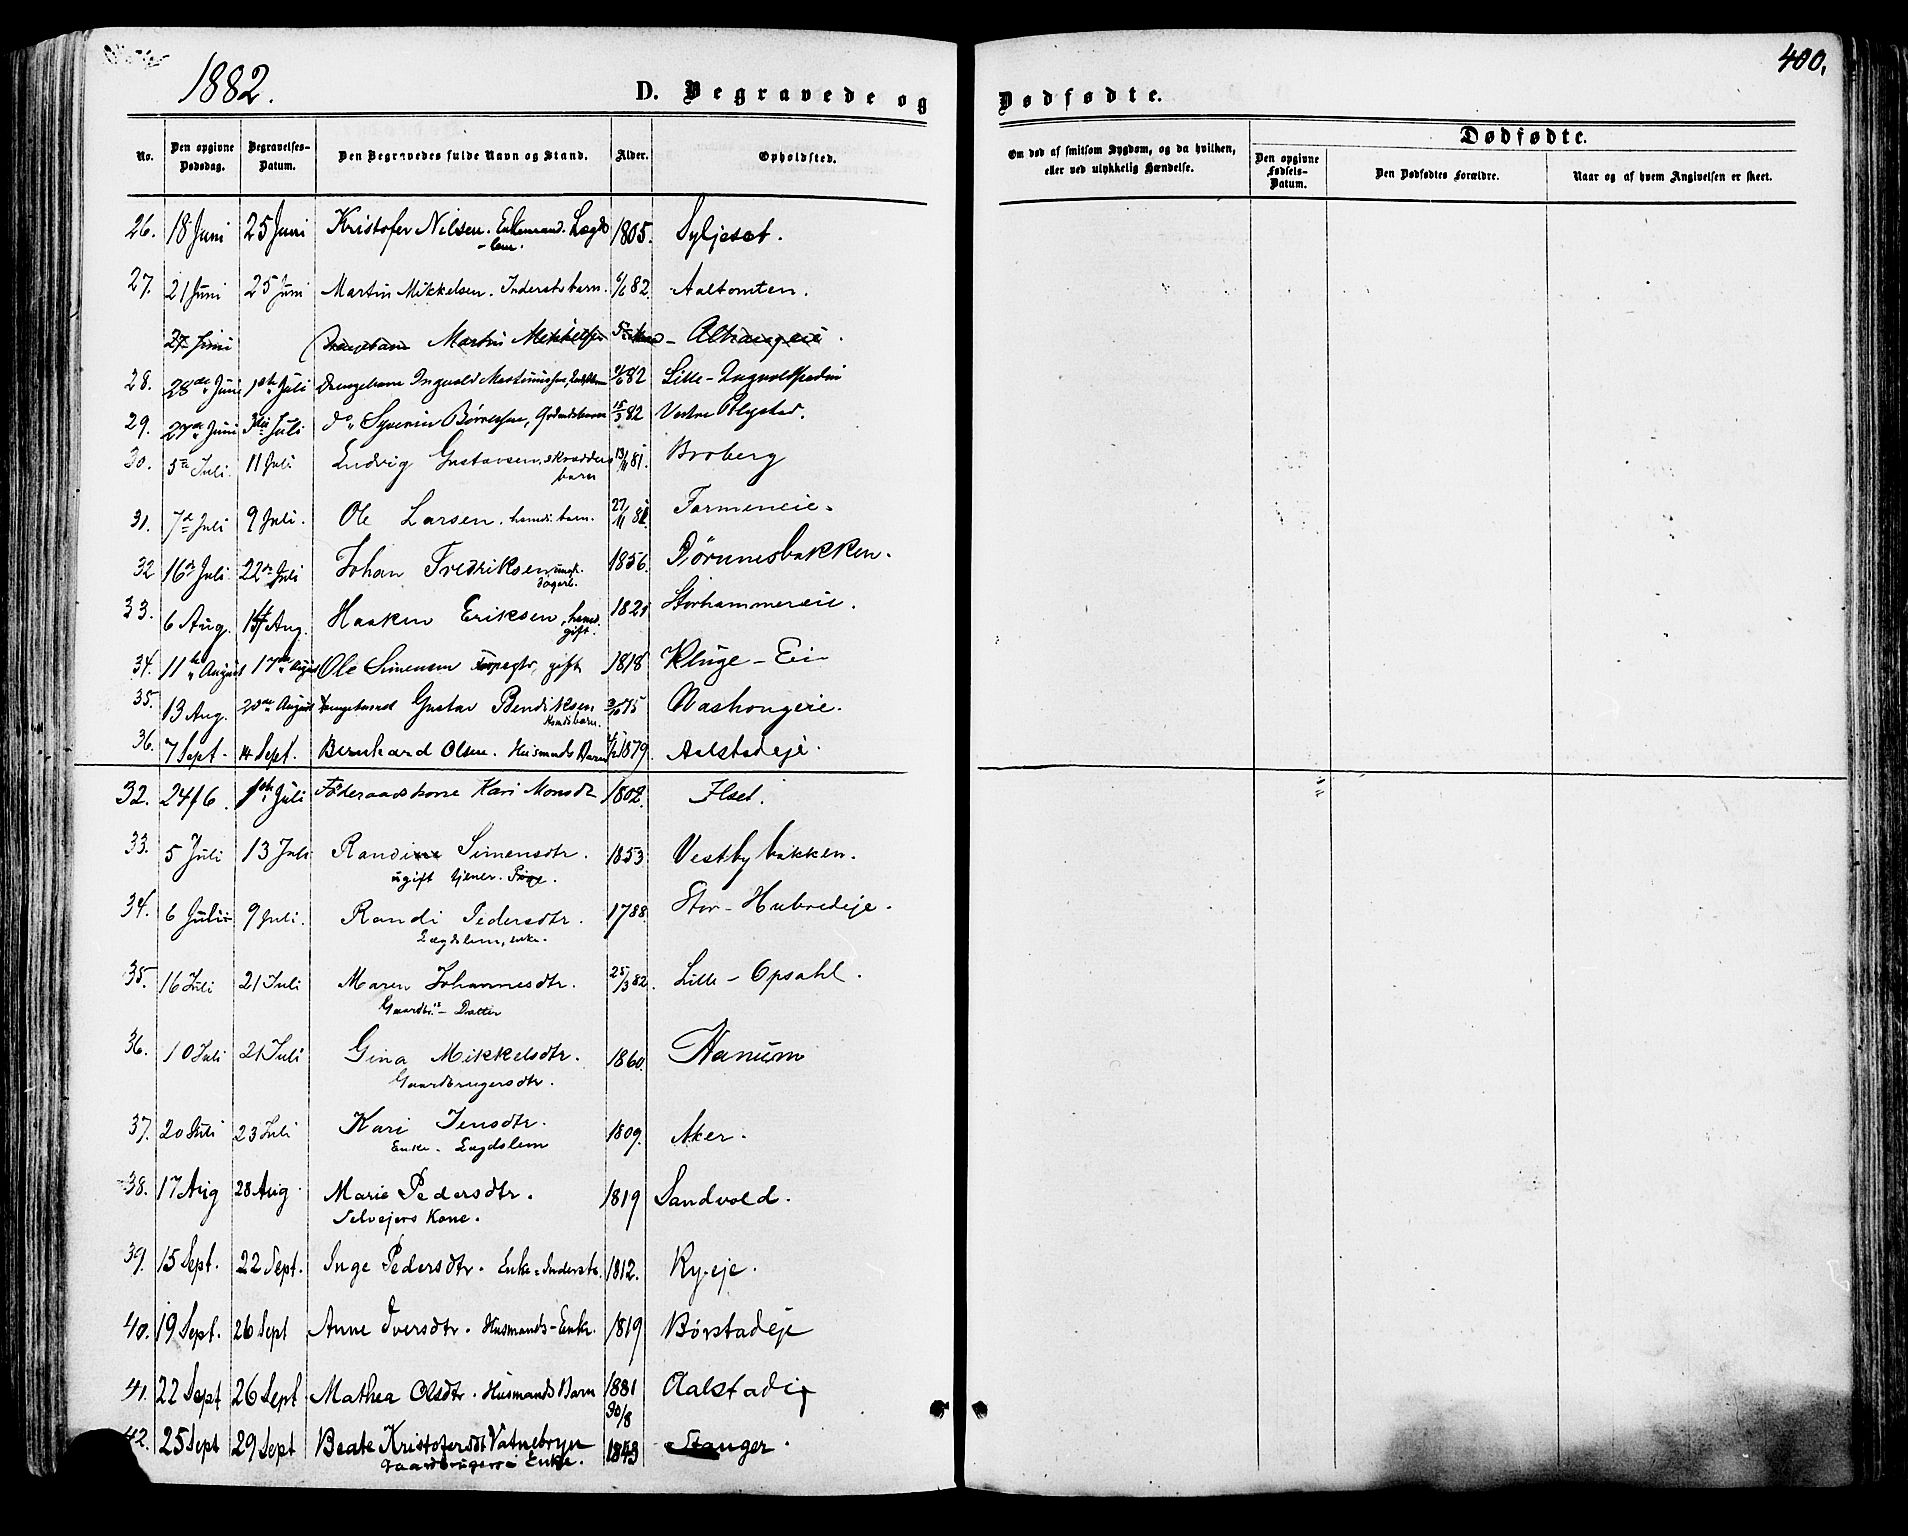 1882.
400.
D. Begravede og
Dødfødte.
No.
Den opgivne Dødsdag.
Begravelses-Datum.
Den Begravedes fulde Navn og Stand.
Alder.
Opholdsted.
Om død af smitsom Sygdom, og da hvilken, eller ved ulykkelig Hændelse.
Dødfødte.
Den opgivne Fødsels-Datum.
Den Dødfødtes Forældre.
Naar og af hvem Angivelsen er skeet.
26. 18 Juni 25 Juni Kristofer Nilsen. Enkemand. Lægds 1805. Syljeset.
-lem.
27. 21 Juni 25 Juni Martin Mikkelsen. Inderstbarn. 6/6 82. Aaltomten.
27 Juni Drengebarn Martin Mikkelsen
28. 28de Juni 1ste Juli Drengebarn Ingvald Martiniussen, 82 Lille-
29. Juni 3die Juli do. Syverin Børresen, 15/3 82 Vestre
30. 5te Juli. 11 Juli Ludvig Gustavsen, skrædder 13/11 81. Broberg
barn
31. 7de Juli 9 Juli. Ole Larsen. hmds. barn. 27/11 81. Farmeneie.
32 16de Juli 22de Juli Johan Fredriksen ungk. 1856.
dagarb.
33. 6 Aug. Aug. Haaken Eriksen, hmd. 1821 Storhammereie.
gift.
34. 11te August 17de August Ole Simensen gift 1818 Kluge-Eie
35. 13 Aug. 20de August Drengebarnet Gustav Bendiksen 75
Hmdsbarn.
36. 7 Sept. 14 Sept. Bernhard Olsen. Husmands Barn 1879. Aalstadeje.
32. 24/6. 1ste Juli Føderaadskone Kari Monsdtr 1802. Ilset.
33. 5 Juli 13 Juli Randi Simensdtr. 1853 Vestbybakken.
ugift tjener. Pige.
34. 6 Juli 9 Juli. Randi Pedersdtr. 1788. Stor-Hubredeje.
Lægdslem, enke.
35. 16 Juli 21 Juli Maren Johannesdtr. 25/3 82. Lille-Opsahl.
Gaardbr.s-Datter
36. 10 Juli 21 Juli Gina Mikkelsdtr. 1860. Hanum
Gaardbrugersdtr.
37. 20 Juli 23 Juli Kari Jensdtr. 1809. Aker.
Enke. Lægdslem
38. 17 Aug 28 Aug Marie Pedersdtr. 1819 Sandvold.
Selvejers Kone.
39. 15 Sept. 22 Sept. Inge Pedersdtr. Enke-Inderste. 1812. Ry-eje.
40. 19 Sept. 26 Sept Anne Iversdtr. Husmands-Enke. 1819 Børstadeje
41. 22 Sept 26 Sept Mathea Olsdtr. Husmands Barn 1881 30/8 Aalstadeje
42. 25 Sept 29 Sept Beate Kristofersdt Vatnebryn 1843 Stanger.
Gaardbrugers Enke.